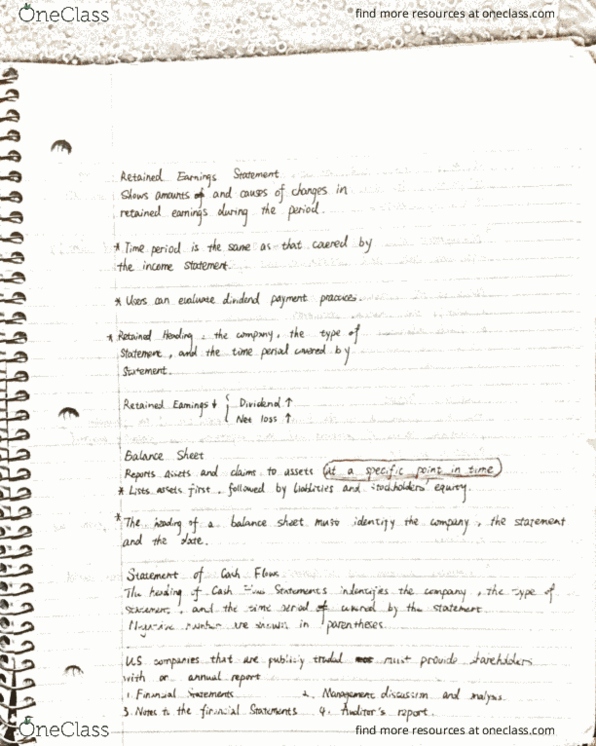 OneClass
find more resources at oneclass.com
Retained Earnings Statement
Shows amounts of and causes of changes in
retained earnings during the period.
* Time period is the same as that covered by
the income statement.
* Users can evaluate dividend payment practices.
* Retained Heading : the company, the type of
Statement, and the time period covered by
Statement.
Retained Earnings ↓ { Dividend ↑
Net loss ↑
Balance Sheet
Reports Assets and claims to assets at a specific point in time
* Lists assets first, followed by liabilities and stockholders' equity.
* The heading of a balance sheet must identify the company, the statement
and the date.
Statement of Cash Flows
The heading of Cash Flows Statements indentifies the company, the type of
statement, and the time period of covered by the statement.
Negative number are shown in parentheses.
US companies that are publicly traded must provide shareholders
with or annual report
1. Financial Statements 2. Management discussion and analysis.
3. Notes to the financial Statements 4. Auditor's report.
OneClass
find more resources at oneclass.com